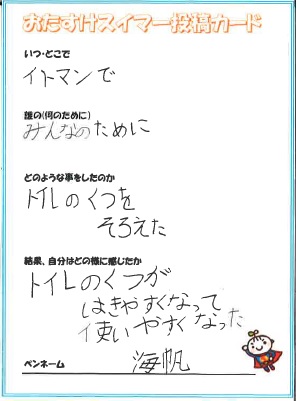 おたすけスイマー投稿カード
いつ・どこで
イトマンで
誰の(何のために)
みんなのために
どのような事をしたのか
トイレのくつを
そろえた
結果、自分はどの様に感じたか
トイレのくつが
はきやすくなって
使いやすくなった
ペンネーム 海帆